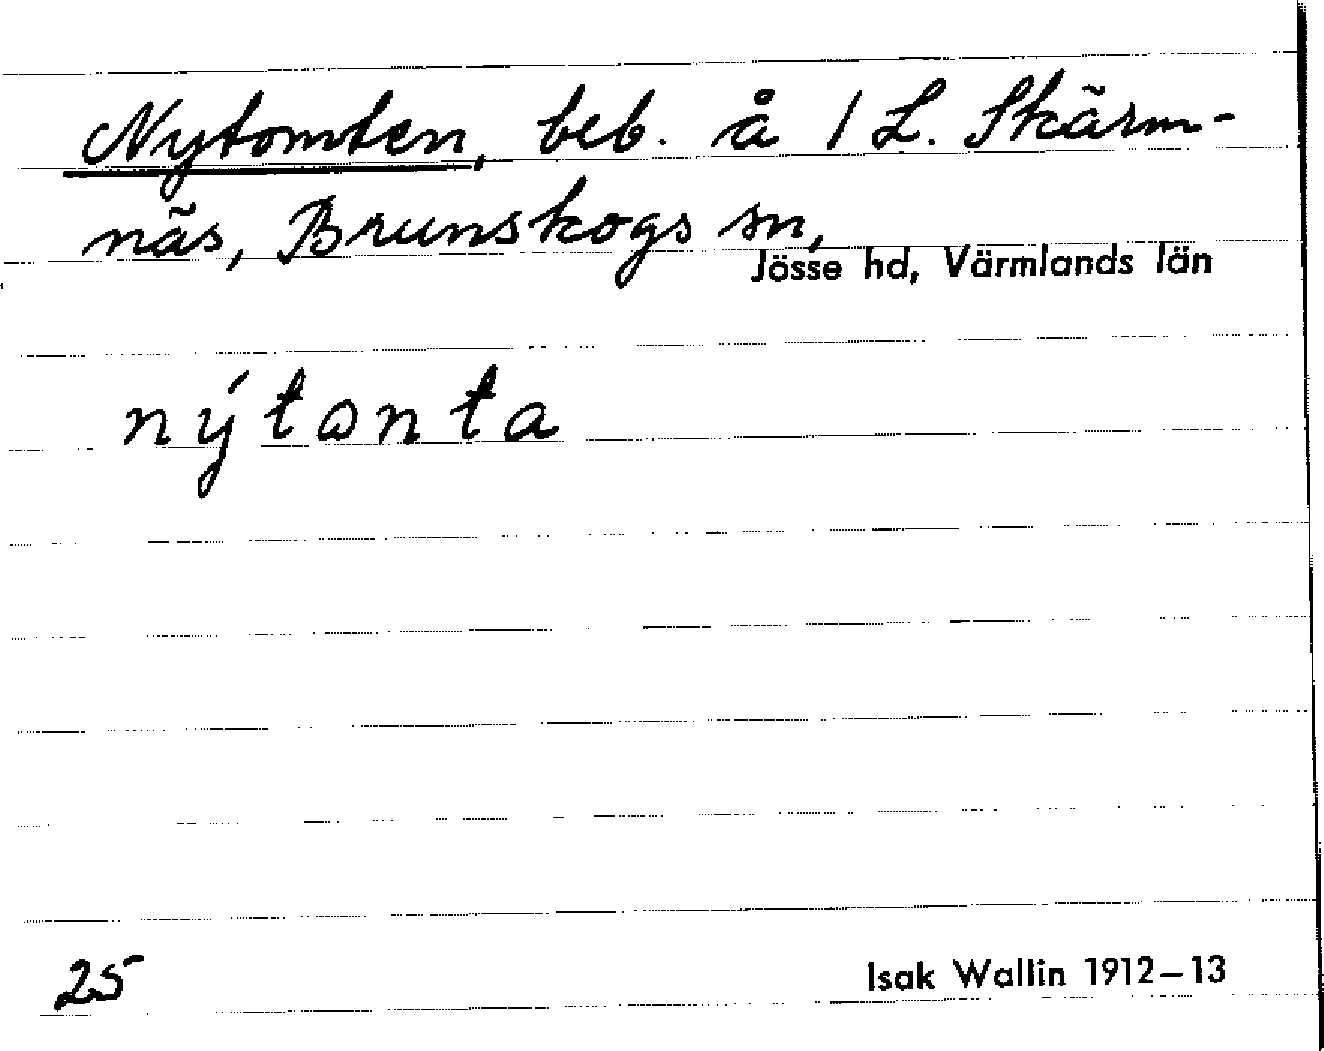 Nytomten, beb. å 1 L. Skärm-
näs, Brunskogs sn,
Jösse hd, Värmlands län
nýtωnta
25
Isak Wallin 1912–13